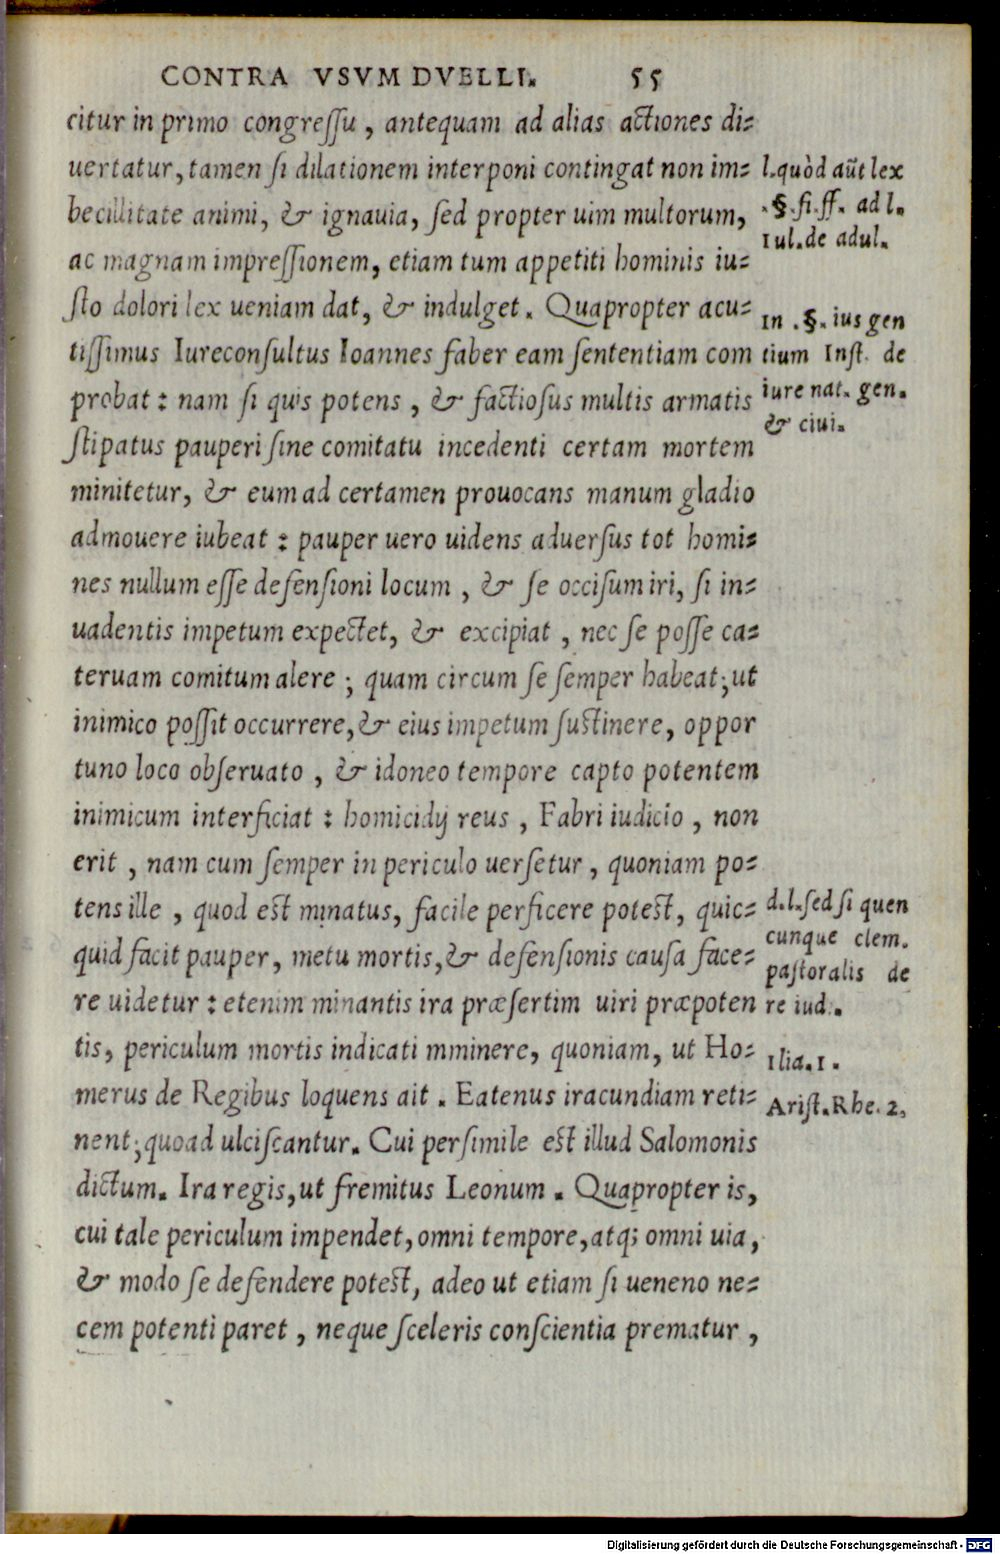 CONTRA VSVM DVELLI. 55
citur in primo congreſſu, antequam ad alias actiones di-
uertatur, tamen ſi dilationem interponi contingat non im-
becillitate animi, & ignauia, ſed propter uim multorum,
ac magnam impreſſionem, etiam tum appetiti hominis iu-
ſto dolori lex ueniam dat, & indulget. Quapropter acu-
tiſſimus Iureconſultus Ioannes faber eam ſententiam com
probat: nam ſi quis potens, & factioſus multis armatis
ſtipatus pauperi ſine comitatu incedenti certam mortem
minitetur, & eum ad certamen prouocans manum gladio
admouere iubeat: pauper uero uidens aduerſus tot homi-
nes nullum eſſe defenſioni locum, & ſe occiſum iri, ſi in-
uadentis impetum expectet, & excipiat, nec ſe poſſe ca-
teruam comitum alere; quam circum ſe ſemper habeat; ut
inimico poſſit occurrere, & eius impetum ſuſtinere, oppor
tuno loco obſeruato, & idoneo tempore capto potentem
inimicum interficiat: homicidij reus, Fabri iudicio, non
erit, nam cum ſemper in periculo uerſetur, quoniam po-
tens ille, quod eſt minatus, facile perficere poteſt, quic-
quid facit pauper, metu mortis, & defenſionis cauſa face-
re uidetur: etenim minantis ira præſertim uiri præpoten
tis, periculum mortis indicat i mminere, quoniam, ut Ho-
merus de Regibus loquens ait. Eatenus iracundiam reti-
nent; quoad ulciſcantur. Cui perſimile eſt illud Salomonis
dictum. Ira regis, ut fremitus Leonum. Quapropter is,
cui tale periculum impendet, omni tempore, atq; omni uia,
& modo ſe defendere poteſt, adeo ut etiam ſi ueneno ne-
cem potenti paret, neque ſceleris conſcientia prematur,
l. quòd aūt lex
.§. ſi. ff. ad l.
Iul. de adul.
In .§. ius gen
tium Inſt. de
iure nat. gen.
& ciui.
d. l. ſed ſi quen
cunque clem.
paſtoralis de
re iud.
Ilia. 1.
Ariſt. Rhe. 2,
Digitalisierung gefördert durch die Deutsche Forschungsgemeinschaft - DFG